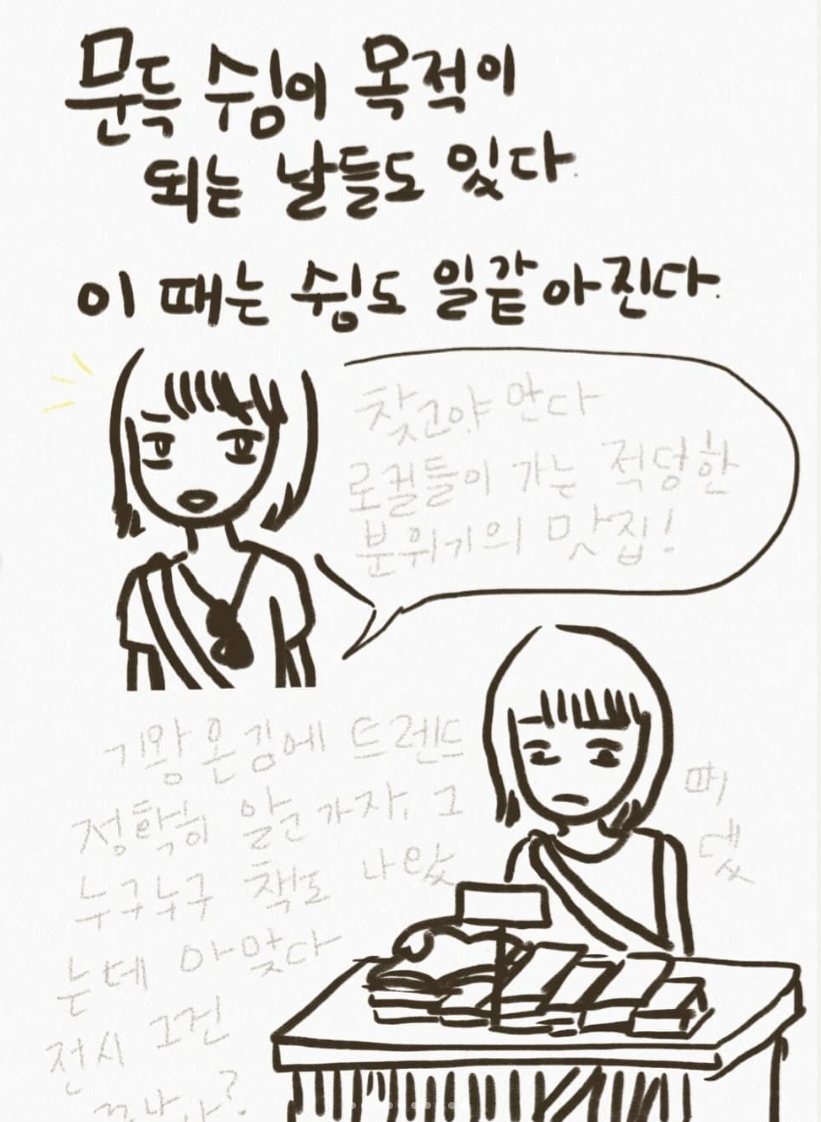 문득 쉼이 목적이
되는 날들도 있다.
이 때는 쉼도 일같아진다.
찾고야 만다
로컬들이 가는 적당한
분위기의 맛집!
기왕 온김에 트렌드
정확히 알고가자, 그
누구누구 책도 나왔
는데 아맞다
전시 그건
끝났나?